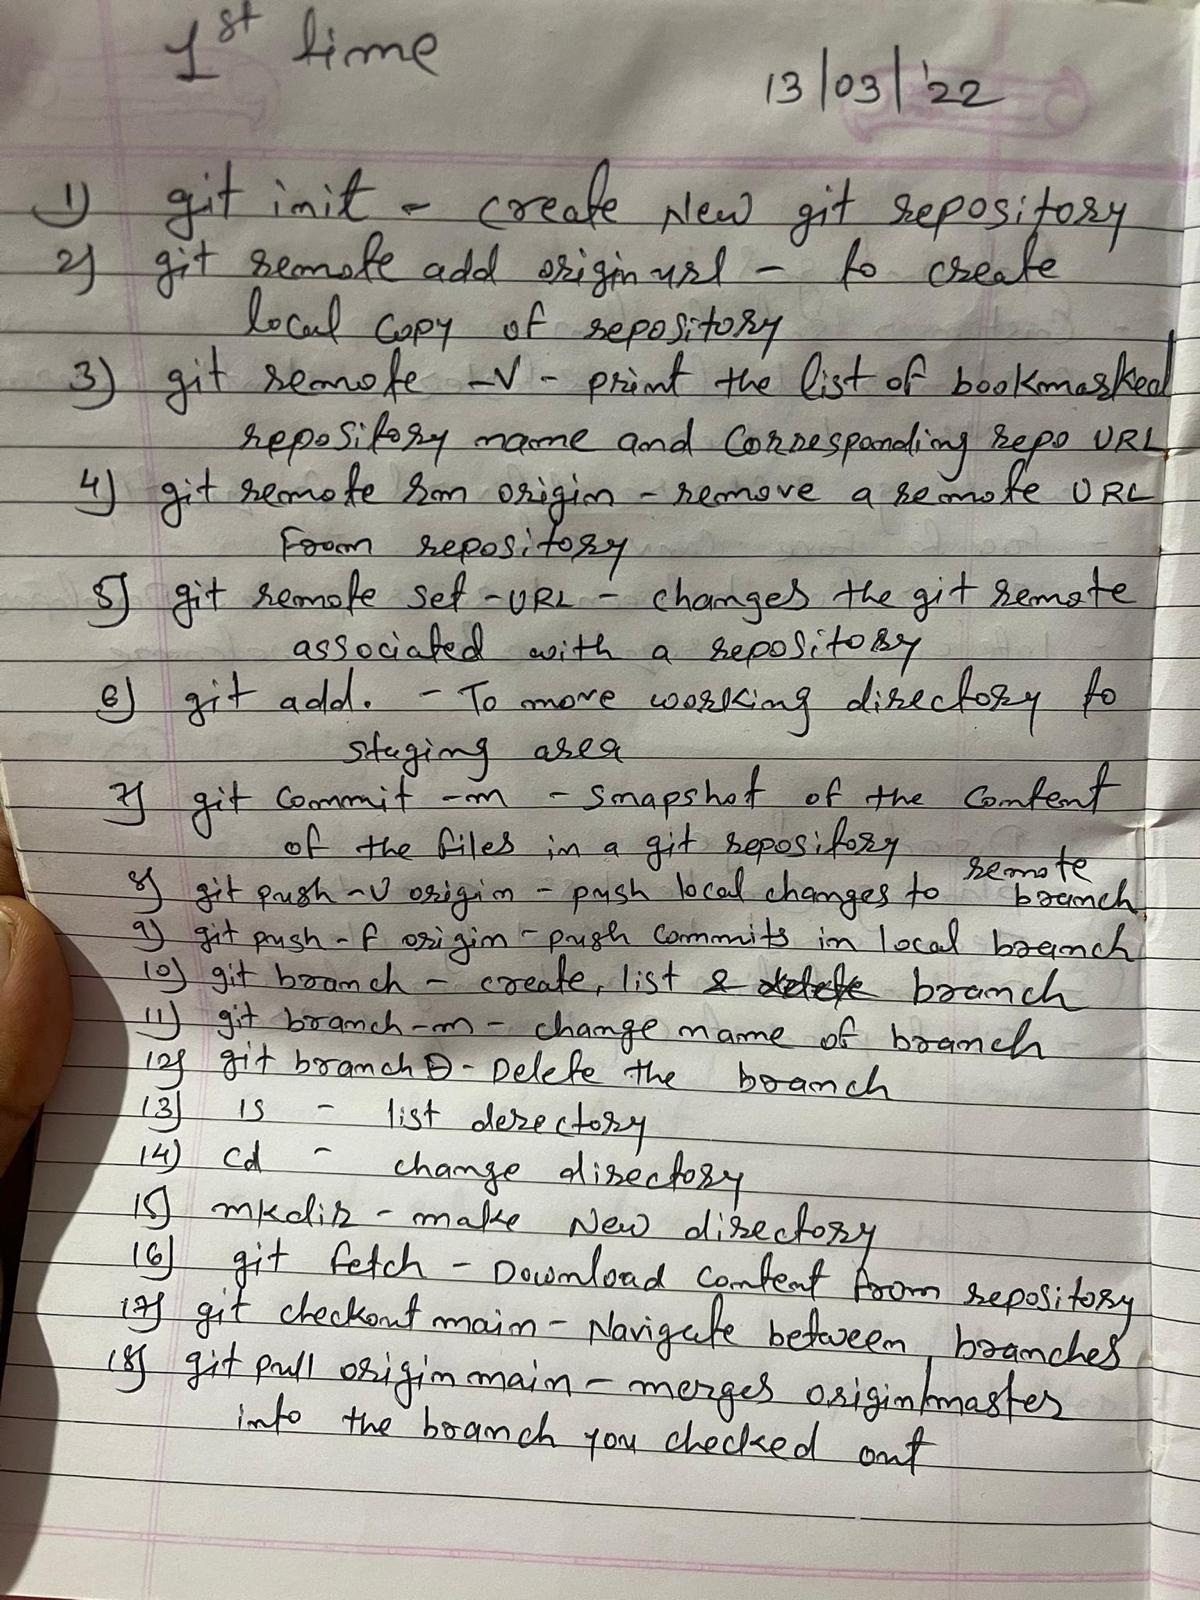 1st time
13/03/'22
1) git init - create New git repository
2) git remote add origin url - to create
local copy of repository
3) git remote -V - print the list of bookmarked
repository name and corresponding repo URL
4) git remote rm origin - remove a remote URL
From repository
5) git remote set -URL - changes the git remote
associated with a repository
6) git add. - To move working directory to
staging area
7) git commit -m - Snapshot of the content
of the files in a git repository
8) git push -U origin - push local changes to remote branch
9) git push -f origin - push commits in local branch
10) git branch - create, list & delete branch
11) git branch -m - change name of branch
12) git branch D - Delete the branch
13) ls - list derectory
14) cd - change directory
15) mkdir - make New directory
16) git fetch - Download content from repository
17) git checkout main - Navigate between branches
18) git pull origin main - merges origin/master
into the branch you checked out